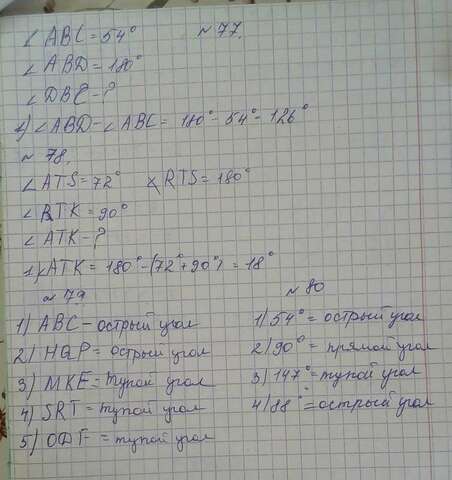 ∠ABC = 54° №77.
∠ABD = 180°
∠DBC - ?
1) ∠ABD - ∠ABC = 180° - 54° - 126°
№78.
∠ATS = 72° ∠RTS = 180°
∠RTK = 90°
∠ATK - ?
1) ∠ATK = 180° - (72° + 90°) = 18°
№79
1) ABC - острый угол
2) HQP = острый угол
3) MKE = тупой угол
4) SRT = тупой угол
5) ODF = тупой угол
№80
1) 54° = острый угол
2) 90° = прямой угол
3) 147° = тупой угол
4) 88° = острый угол